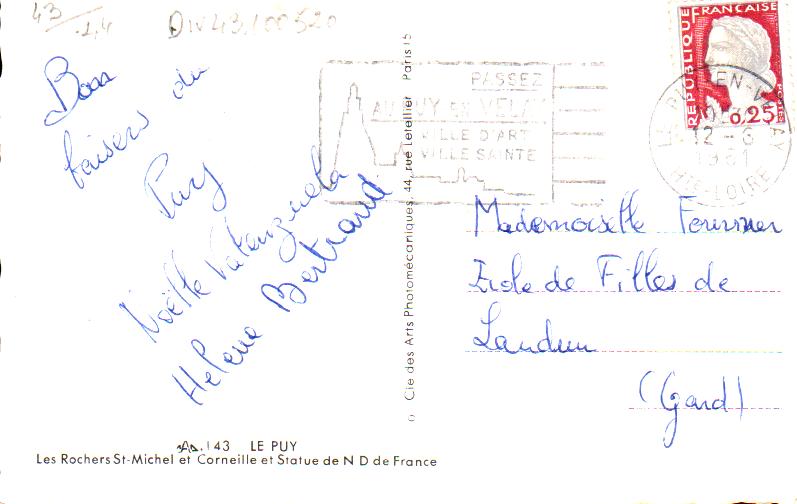 43
1.4
Div43.100520
Bons
baisers du
Puy
Noëlle Valenzuela
Helene Bertrand
PASSEZ
AU PUY EN VELAY
VILLE D'ART
VILLE SAINTE
REPUBLIQUE FRANÇAISE
0,25
LE PUY-EN-VELAY
12-6
1961
HTE-LOIRE
© Cie des Arts Photomécaniques, 44, rue Letellier Paris 15
Mademoiselle Fournier
Ecole de Filles de
Laudun
(Gard)
143 LE PUY
Les Rochers St-Michel et Corneille et Statue de N D de France